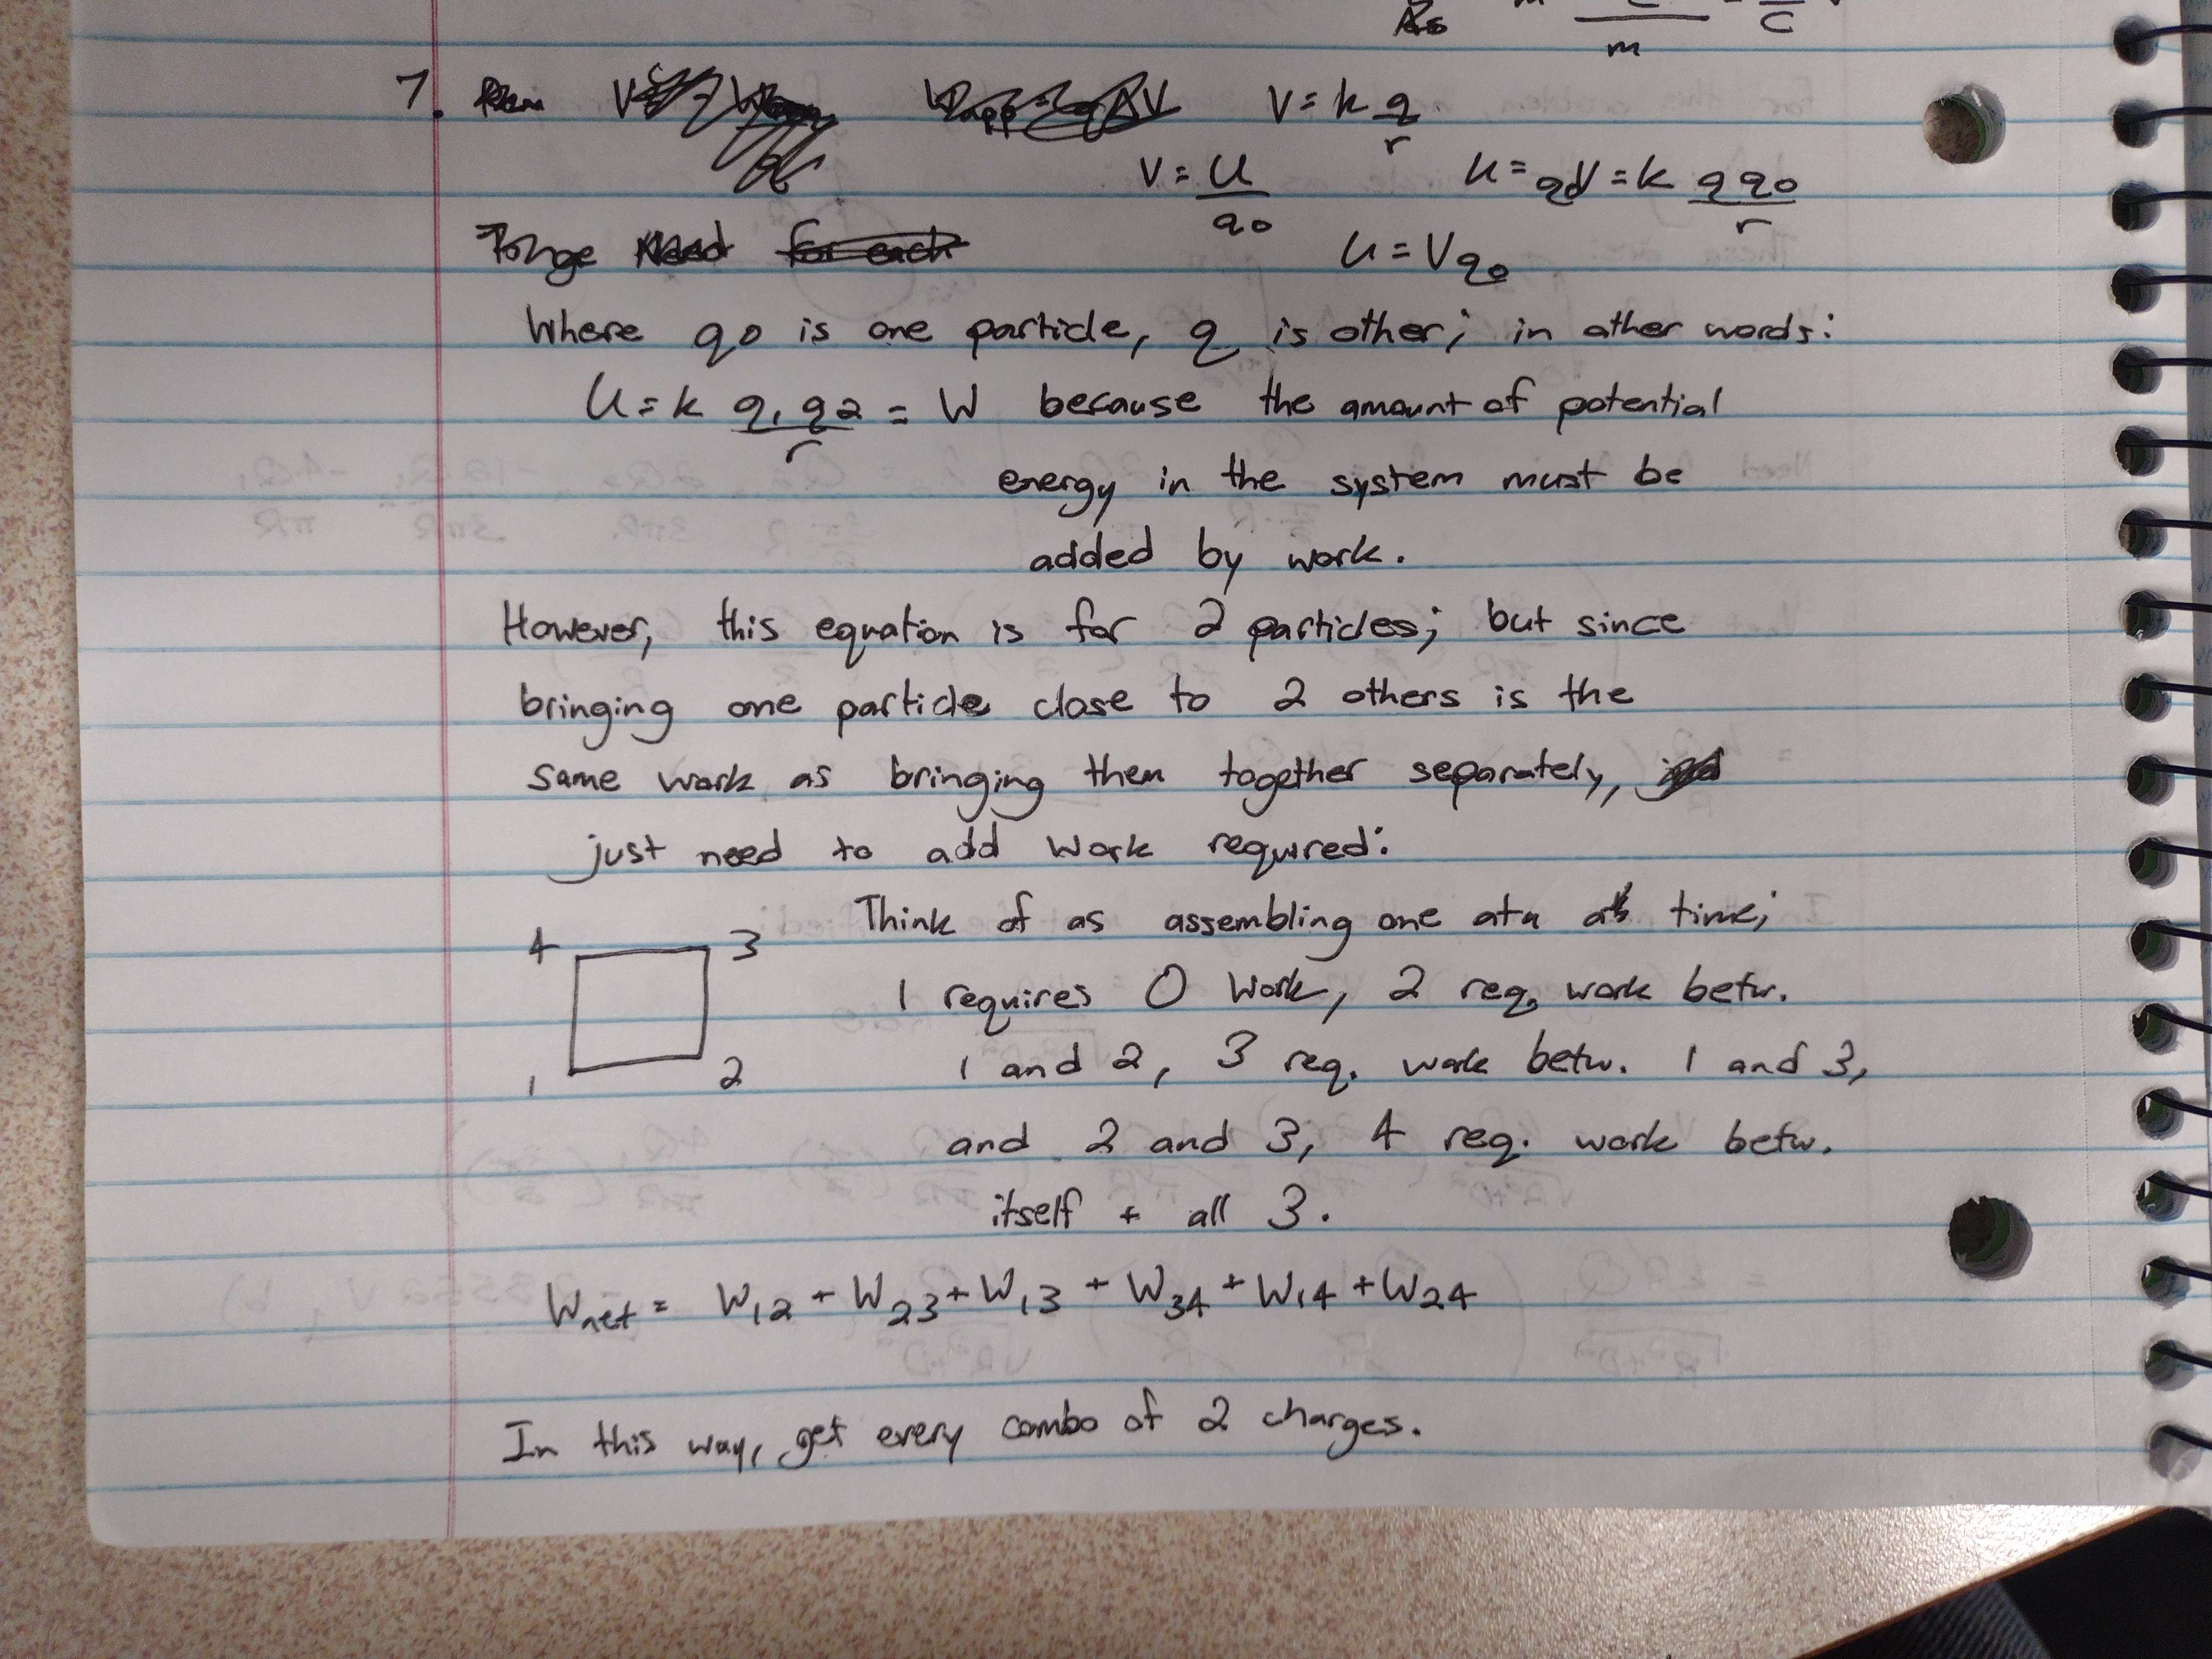 m
7. V = k q/r
V = U/q0 U = qV = k q q0/r
U = Vq0
Where q0 is one particle, q is other; in other words:
U = k q1q2/r = W because the amount of potential
energy in the system must be
added by work.
However, this equation is for 2 particles; but since
bringing one particle close to 2 others is the
same work as bringing them together separately,
just need to add work required:
Think of as assembling one at a time;
4 3
1 requires 0 work, 2 req. work betw.
1 2 1 and 2, 3 req. work betw. 1 and 3,
and 2 and 3, 4 req. work betw.
itself + all 3.
Wnet = W12 + W23 + W13 + W34 + W14 + W24
In this way, get every combo of 2 charges.